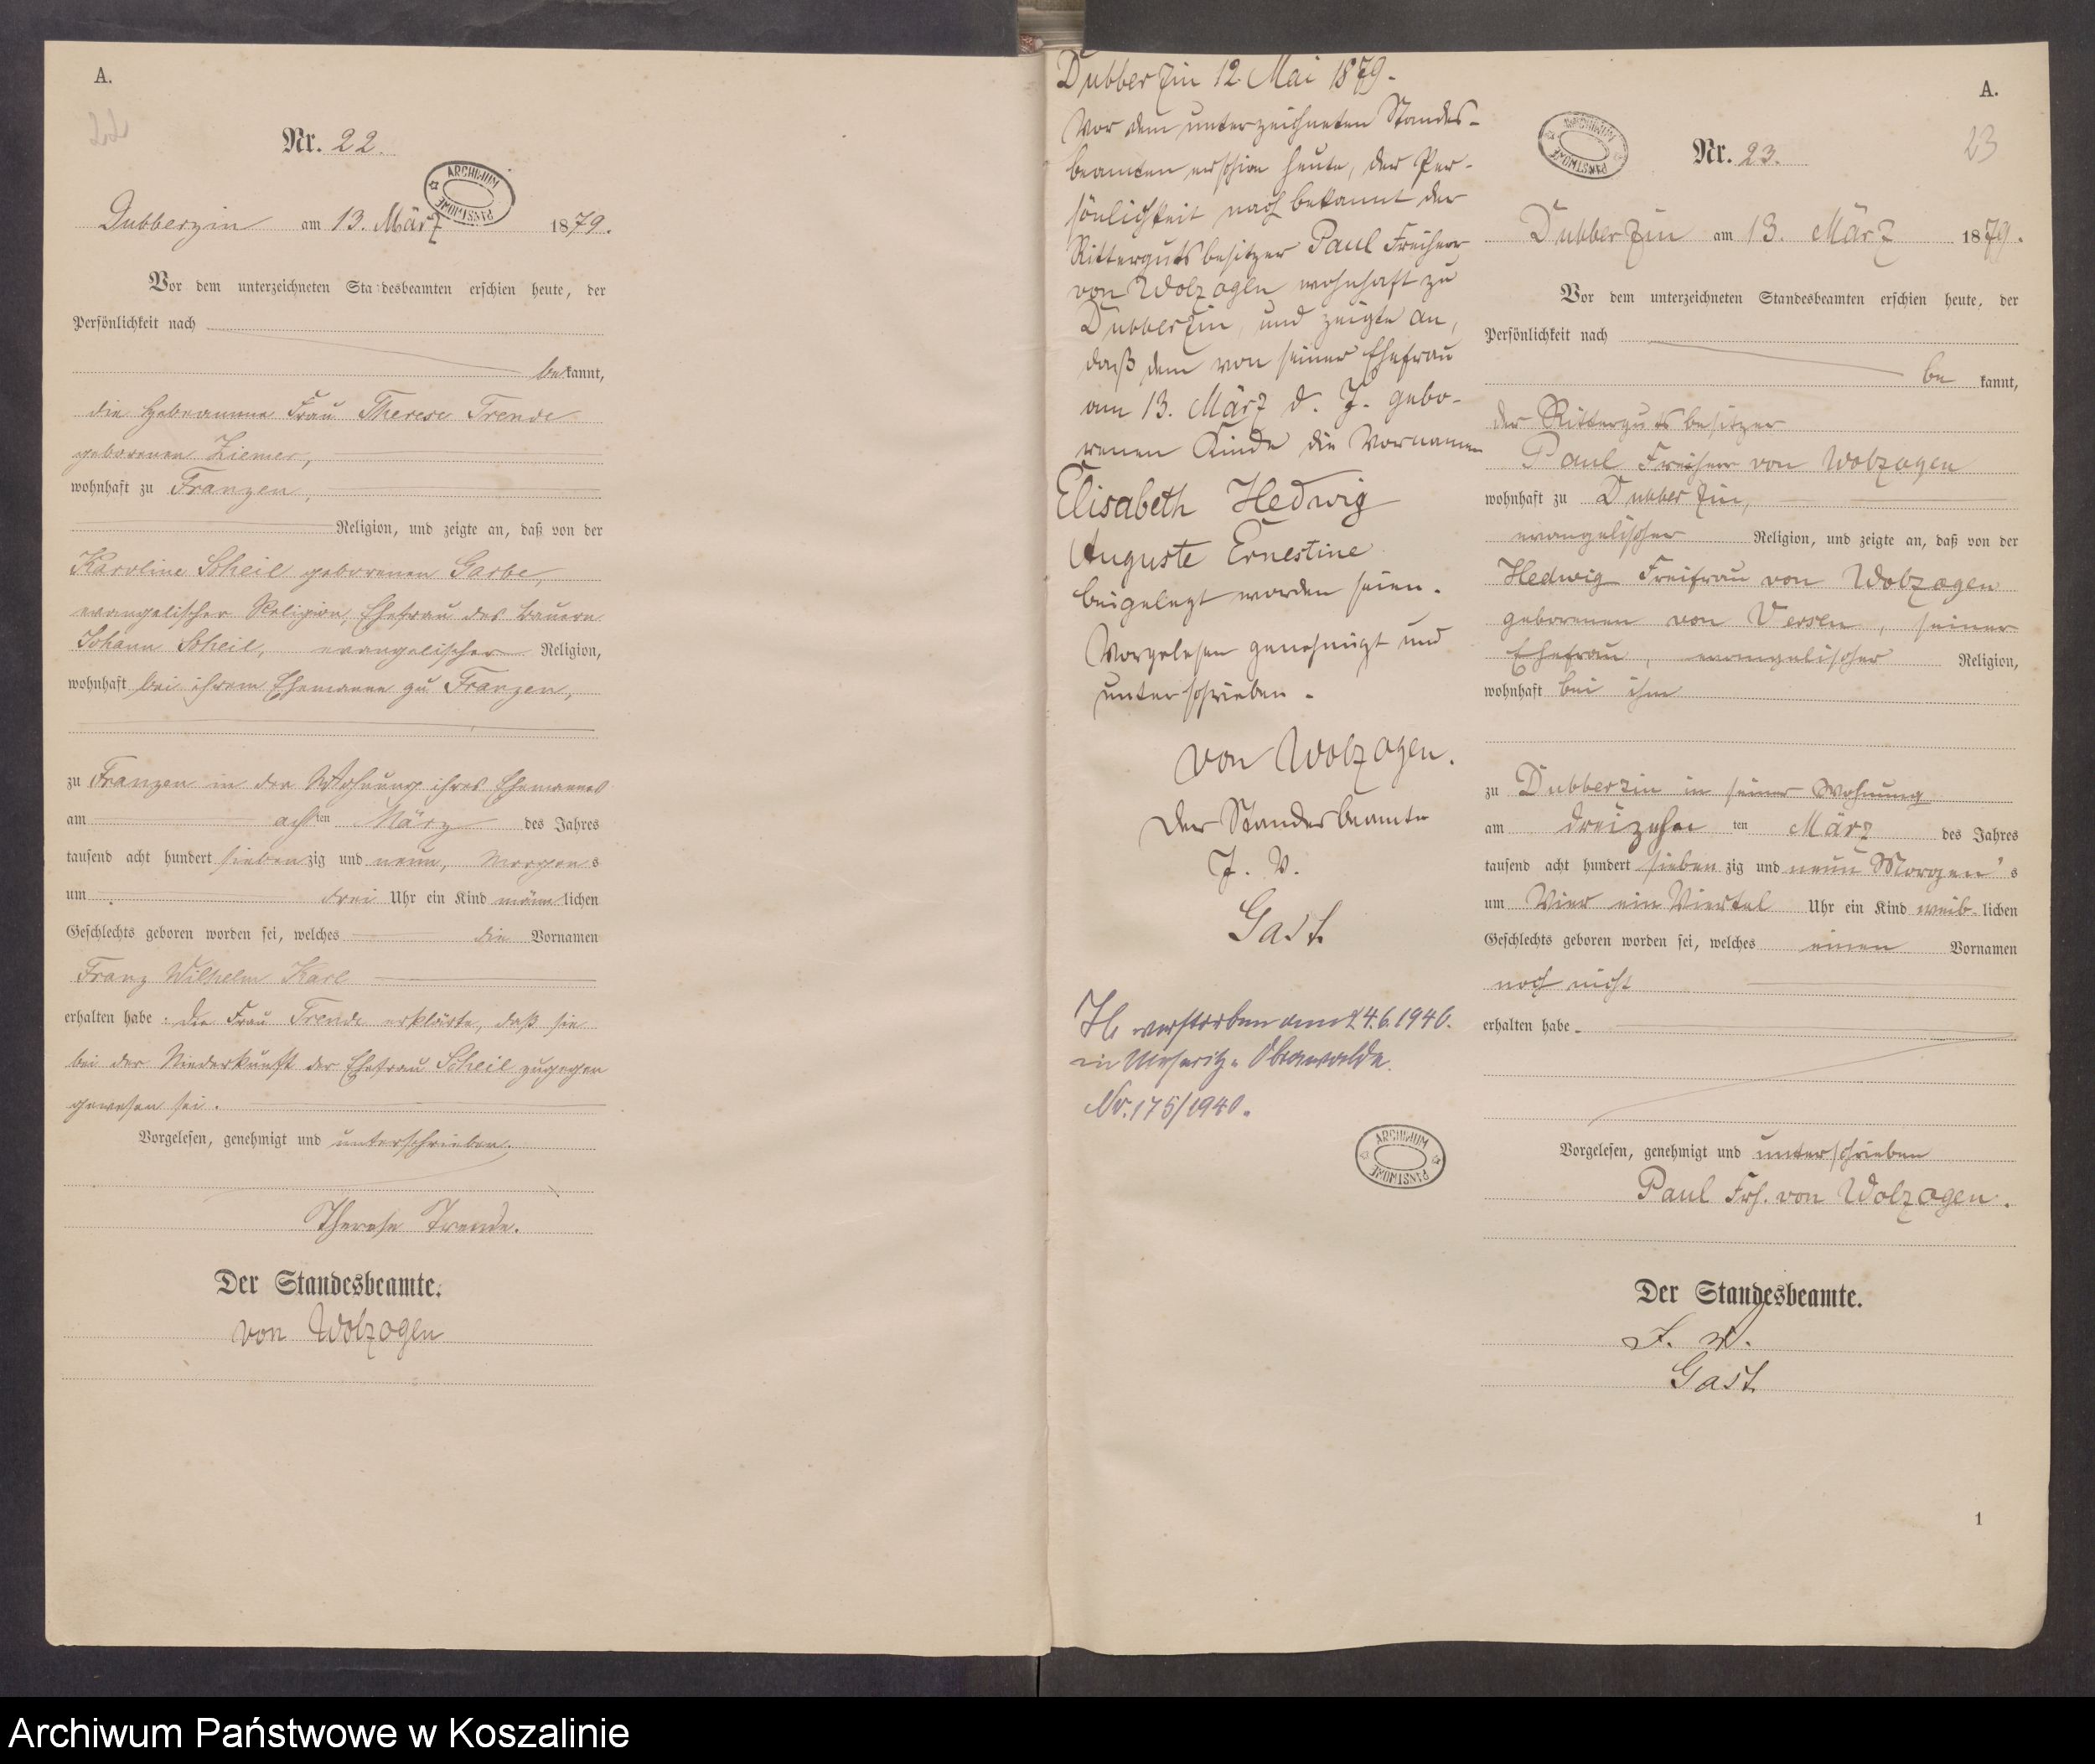 A.
22
Nr. 22.
ARCHIWUM PAŃSTWOWE
Dubberzin am 13. März 1879.
Vor dem unterzeichneten Standesbeamten erschien heute, der
Persönlichkeit nach
bekannt,
die Hebeamme Frau Therese Trende
geborenen Ziemer,
wohnhaft zu Franzen,
Religion, und zeigte an, daß von der
Karoline Scheil geborenen Garbe,
evangelischer Religion, Ehefrau des Bauern
Johann Scheil, evangelischer Religion,
wohnhaft bei ihrem Ehemanne zu Franzen,
zu Franzen in der Wohnung ihres Ehemannes
am achten März des Jahres
tausend acht hundert siebenzig und neun, Morgens
um drei Uhr ein Kind männlichen
Geschlechts geboren worden sei, welches die Vornamen
Franz Wilhelm Karl
erhalten habe: die Frau Trende erklärte, daß sie
bei der Niederkunft der Ehefrau Scheil zugegen
gewesen sei.
Vorgelesen, genehmigt und unterschrieben.
Therese Trende.
Der Standesbeamte.
von Wolzogen
Dubberzin 12. Mai 1879.
Vor dem unterzeichneten Standes-
beamten erschien heute, der Per-
sönlichkeit nach bekannt der
Rittergutsbesitzer Paul Freiherr
von Wolzogen wohnhaft zu
Dubberzin, und zeigte an,
daß dem von seiner Ehefrau
am 13. März d. J. gebo-
renen Kinde die Vornamen
Elisabeth Hedwig
Auguste Ernestine
beigelegt worden seien.
Vorgelesen genehmigt und
unterschrieben.
von Wolzogen.
Der Standesbeamte
J. V.
Gast.
verstorben am 24.6.1940.
in Meseritz-Obrawalde.
Nr. 175/1940.
ARCHIWUM PAŃSTWOWE
A.
23
ARCHIWUM PAŃSTWOWE
Nr. 23.
Dubberzin am 13. März 1879.
Vor dem unterzeichneten Standesbeamten erschien heute, der
Persönlichkeit nach
be kannt,
der Rittergutsbesitzer
Paul Freiherr von Wolzogen
wohnhaft zu Dubberzin,
evangelischer Religion, und zeigte an, daß von der
Hedwig Freifrau von Wolzogen
geborenen von Versen, seiner
Ehefrau, evangelischer Religion,
wohnhaft bei ihm
zu Dubberzin in seiner Wohnung
am dreizehn ten März des Jahres
tausend acht hundert sieben zig und neun Morgen's
um Vier ein Viertel Uhr ein Kind weib lichen
Geschlechts geboren worden sei, welches einen Vornamen
noch nicht
erhalten habe.
Vorgelesen, genehmigt und unterschrieben
Paul Frh. von Wolzogen.
Der Standesbeamte.
J. V.
Gast.
1
Archiwum Państwowe w Koszalinie